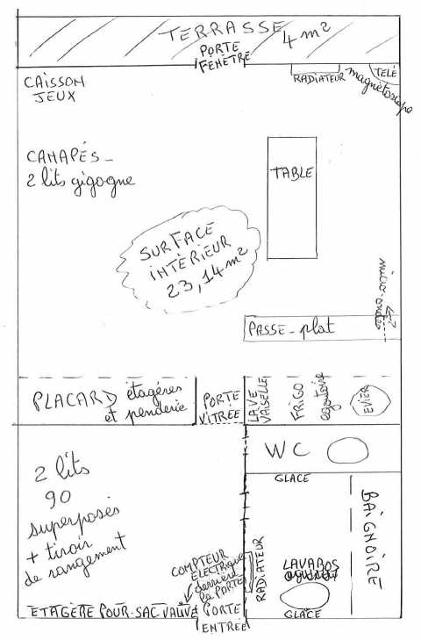 TERRASSE
4 m²
PORTE
FENÊTRE
RADIATEUR
TELÉ
magnétoscope
CAISSON
JEUX
CANAPÉS_
2 lits gigogne
TABLE
SURFACE
INTÈRIEUR
23,14 m²
micro-ondes
PASSE-plat
PLACARD étagères
et penderie
PORTE
VITREE
LAVE
VAISELLE
FRIGO
EVIER
WC
GLACE
2 lits
90
superposés
+ tiroir
de rangement
COMPTEUR
ELECTRIQUE
derrière
la PORTE
RADIATEUR
LAVABOS
BAIGNOIRE
GLACE
ETAGÈRE POUR SAC VALIVE
PORTE
ENTREE